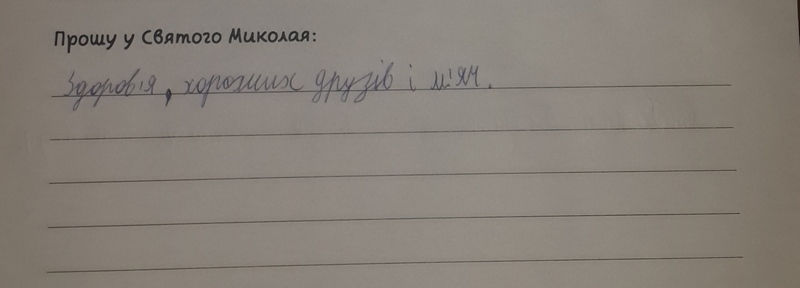 Прошу у Святого Миколая:
Здоров'я, хороших друзів і м'яч.